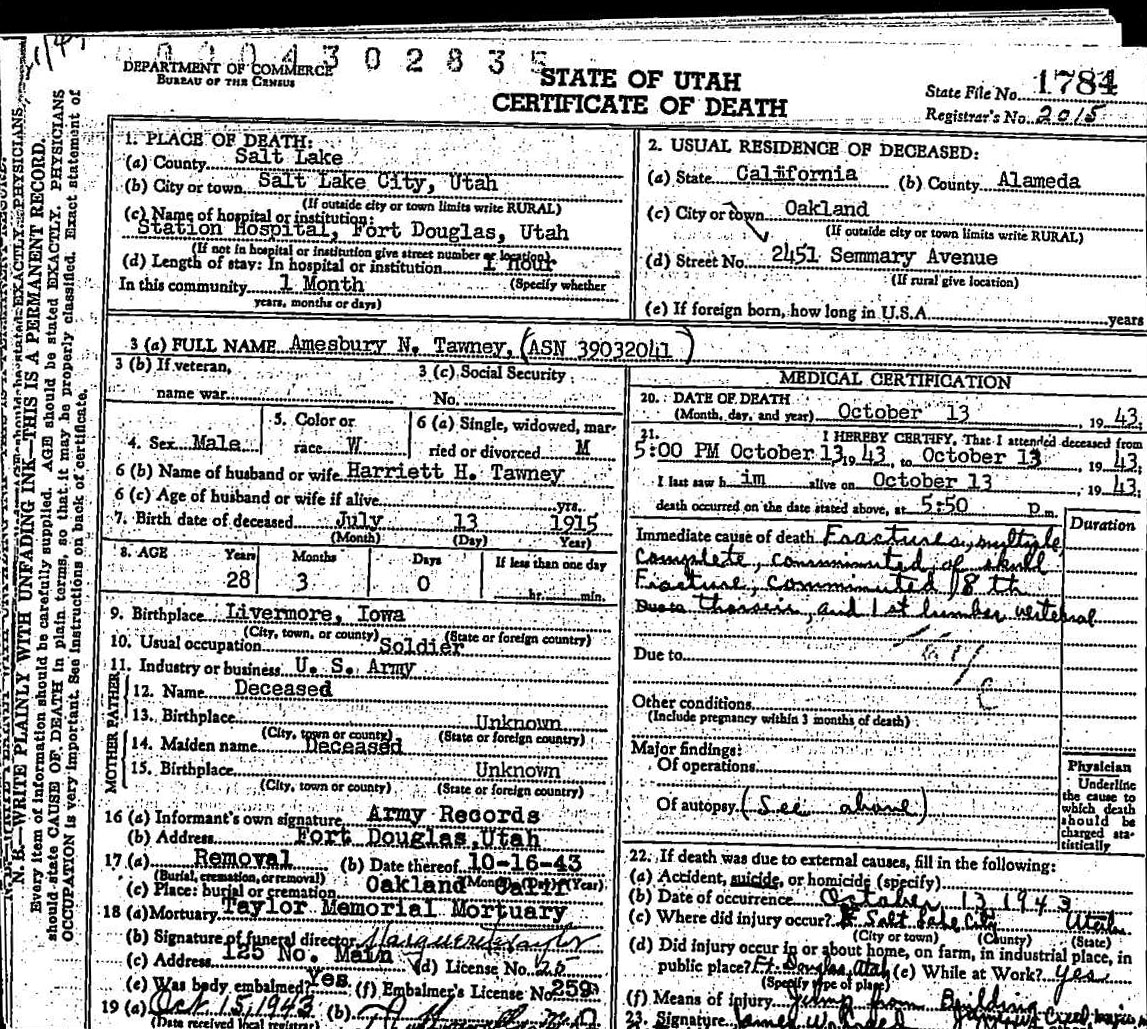 0 2 0 4 3 0 2 8 3 5
DEPARTMENT OF COMMERCE
BUREAU OF THE CENSUS
STATE OF UTAH
CERTIFICATE OF DEATH
State File No. 1784
Registrar's No. 2015
N. B.—WRITE PLAINLY WITH UNFADING INK—THIS IS A PERMANENT RECORD.
Every item of information should be carefully supplied. AGE should be stated EXACTLY. PHYSICIANS
should state CAUSE OF DEATH in plain terms, so that it may be properly classified. Exact statement of
OCCUPATION is very important. See instructions on back of certificate.
1. PLACE OF DEATH:
(a) County Salt Lake
(b) City or town Salt Lake City, Utah
(If outside city or town limits write RURAL)
(c) Name of hospital or institution:
Station Hospital, Fort Douglas, Utah
(If not in hospital or institution give street number or location)
(d) Length of stay: In hospital or institution 1 hour
In this community 1 Month (Specify whether
years, months or days)
2. USUAL RESIDENCE OF DECEASED:
(a) State California (b) County Alameda
(c) City or town Oakland
(If outside city or town limits write RURAL)
(d) Street No. 2451 Semmary Avenue
(If rural give location)
(e) If foreign born, how long in U.S.A. years
3 (a) FULL NAME Amesbury N. Tawney, (ASN 39032041)
3 (b) If veteran,
name war
3 (c) Social Security
No.
4. Sex Male
5. Color or
race W
6 (a) Single, widowed, mar-
ried or divorced M
6 (b) Name of husband or wife Harriett H. Tawney
6 (c) Age of husband or wife if alive yrs.
7. Birth date of deceased July 13 1915
(Month) (Day) Year)
8. AGE Years Months Days If less than one day
28 3 0 hr. min.
9. Birthplace Livermore, Iowa
(City, town, or county) (State or foreign country)
10. Usual occupation Soldier
11. Industry or business U. S. Army
FATHER
12. Name Deceased
13. Birthplace Unknown
(City, town or county) (State or foreign country)
MOTHER
14. Maiden name Deceased
15. Birthplace Unknown
(City, town or county) (State or foreign country)
16 (a) Informant's own signature Army Records
(b) Address Fort Douglas, Utah
17 (a) Removal (b) Date thereof 10-16-43
(Burial, cremation, or removal) (Month) (Day) (Year)
(c) Place: burial or cremation Oakland Calif
18 (a) Mortuary Taylor Memorial Mortuary
(b) Signature of funeral director Marguerite Taylor
(c) Address 125 No. Main (d) License No. 25
(e) Was body embalmed? Yes (f) Embalmer's License No. 259
19 (a) Oct 15, 1943 (b)
(Date received local registrar)
MEDICAL CERTIFICATION
20. DATE OF DEATH
(Month, day, and year) October 13, 19 43.
21. I HEREBY CERTIFY, That I attended deceased from
5:00 PM October 13, 19 43, to October 13, 19 43.
I last saw h im alive on October 13, 19 43,
death occurred on the date stated above, at 5:50 p.m.
Duration
Immediate cause of death Fractures, multiple
complete, comminuted, of skull
Fracture, comminuted, 8 th
Due to thorasic, and 1st lumbar vertebral
Due to
Other conditions
(Include pregnancy within 3 months of death)
Major findings:
Of operations
Of autopsy (See above)
Physician
Underline
the cause to
which death
should be
charged sta-
tistically
22. If death was due to external causes, fill in the following:
(a) Accident, suicide, or homicide (specify)
(b) Date of occurrence October 13 1943
(c) Where did injury occur? Salt Lake City Utah
(City or town) (County) (State)
(d) Did injury occur in or about home, on farm, in industrial place, in
public place? Ft. Douglas, Utah (e) While at Work? Yes
(Specify type of place)
(f) Means of injury Jump from Building
23. Signature James W. Creel